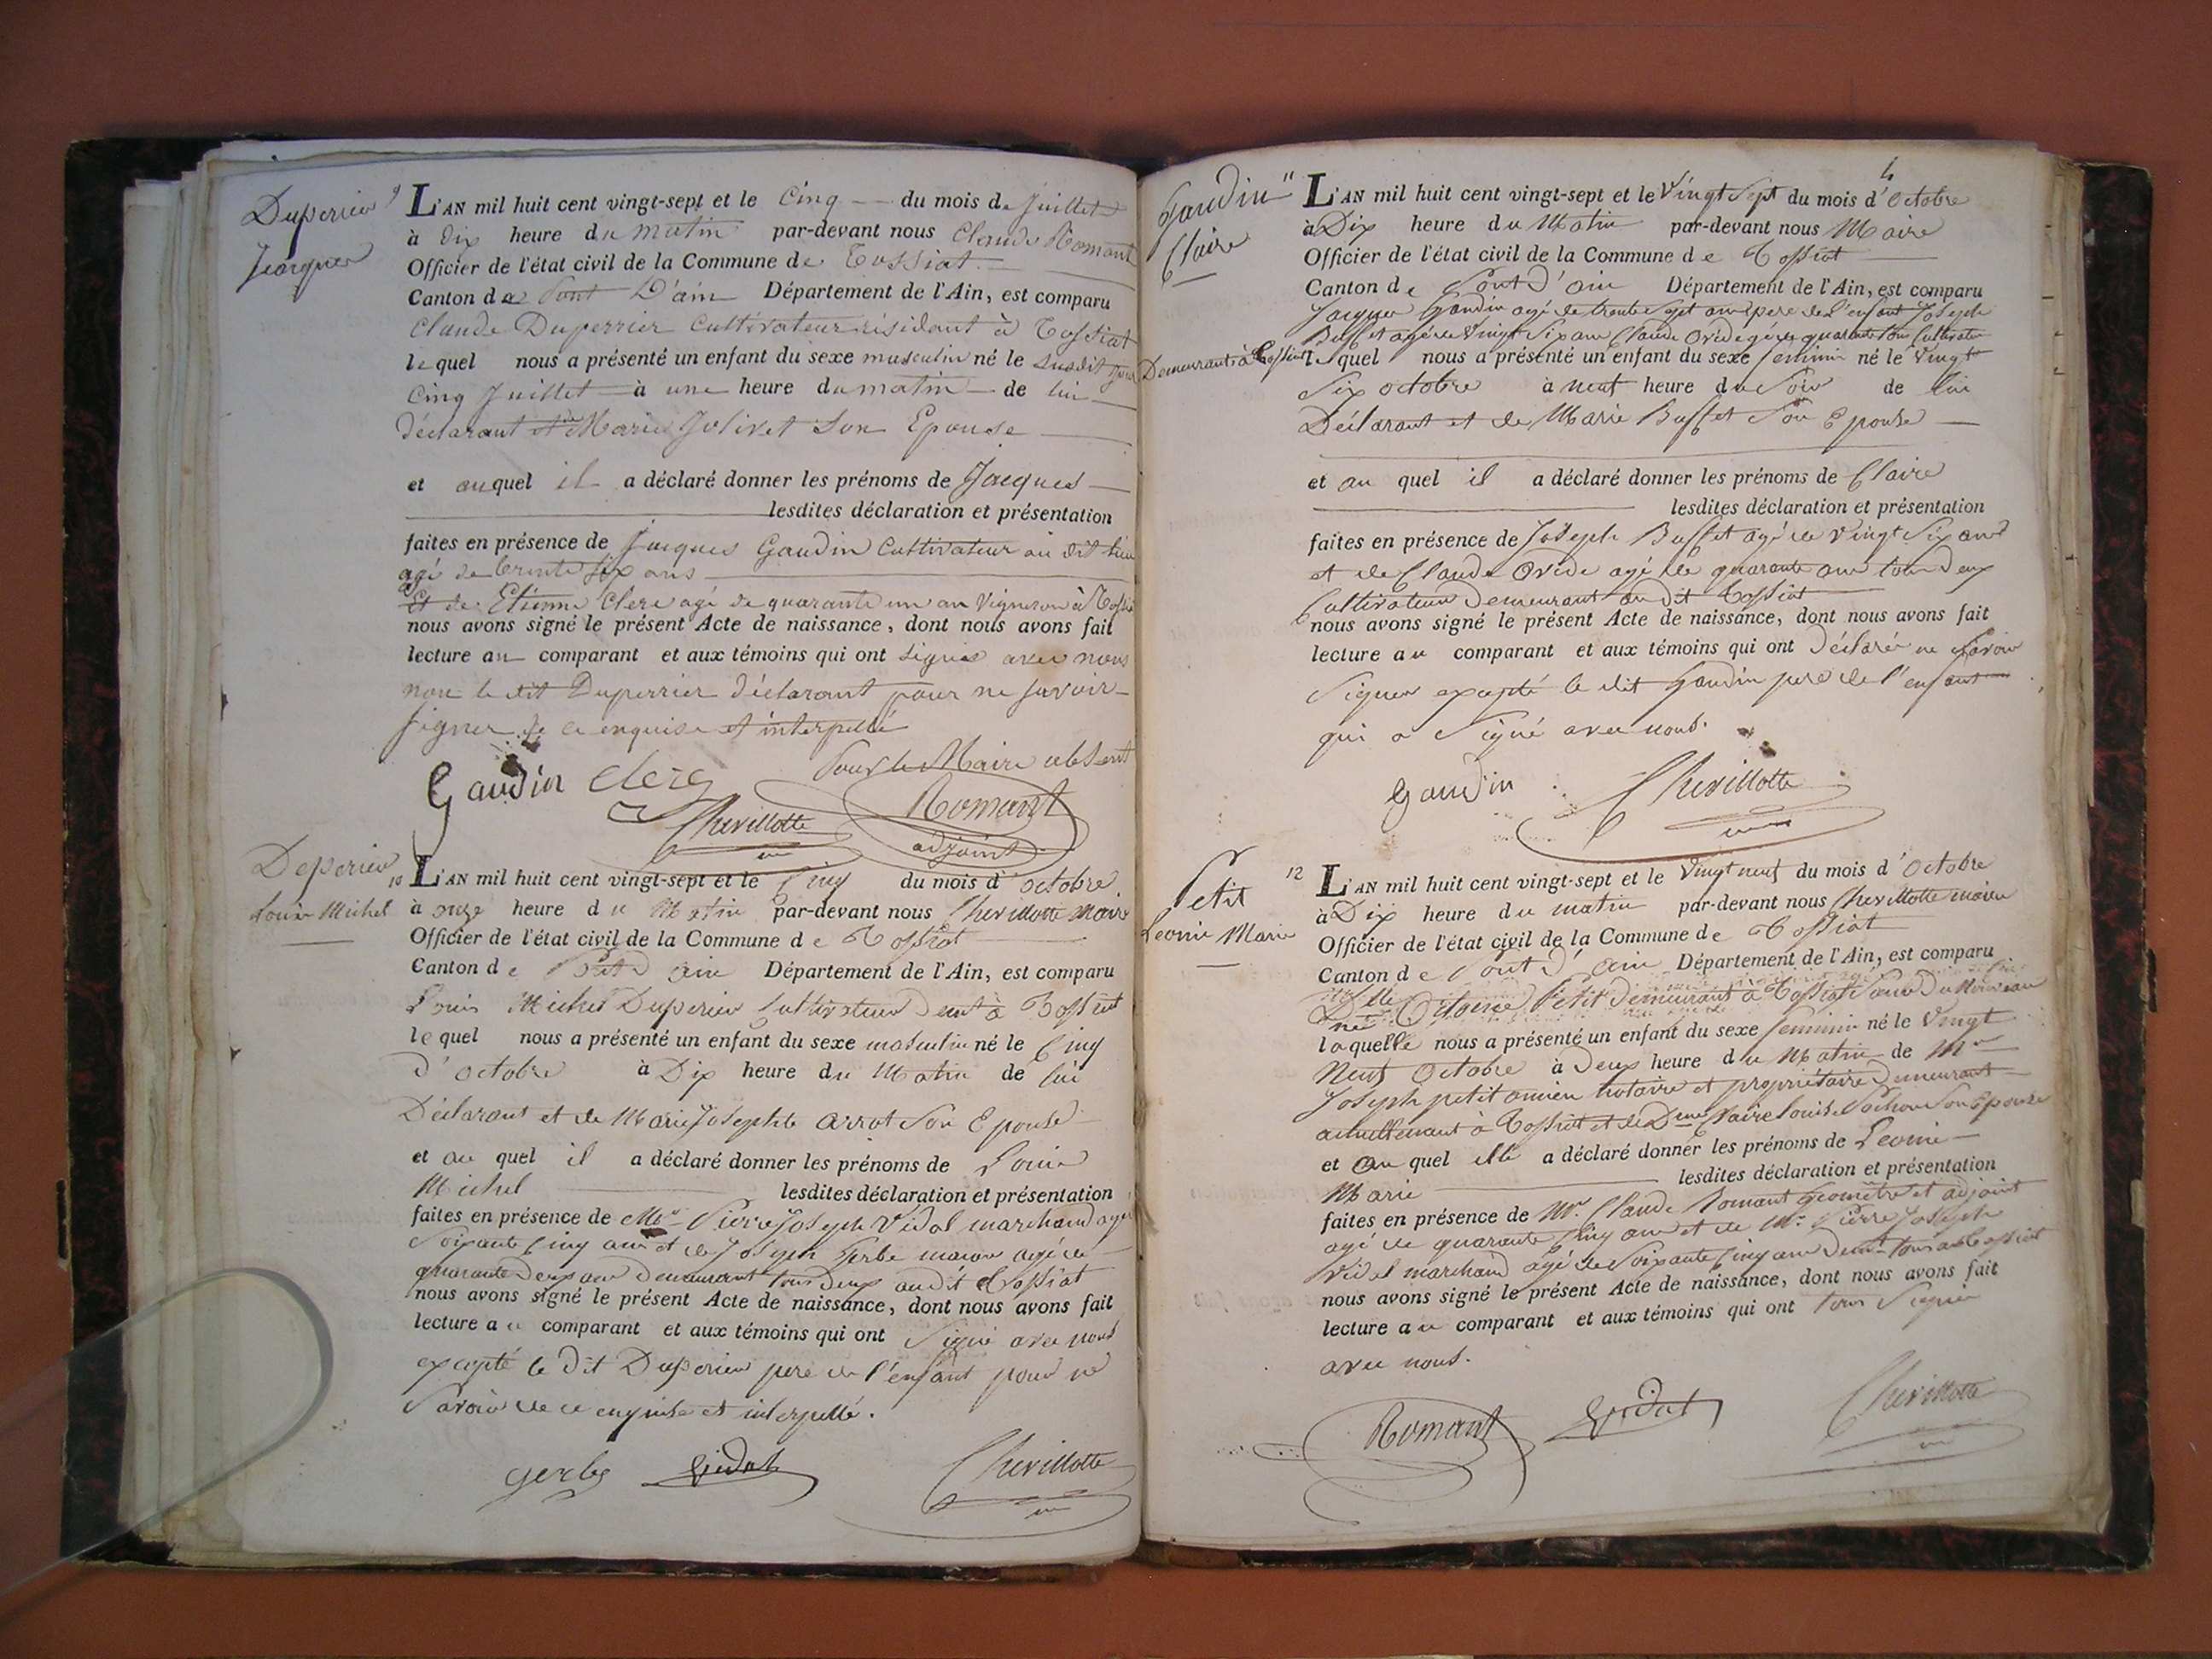 Duperier
Jacques
9
L'AN mil huit cent vingt-sept et le Cinq du mois de Juillet
à Dix heure du matin par-devant nous Claude Romant
Officier de l'état civil de la Commune de Tossiat
Canton de Pont D'ain Département de l'Ain, est comparu
Claude Duperrier Cultivateur résidant à Tossiat
lequel nous a présenté un enfant du sexe masculin né le susdit jour
Cinq Juillet à une heure du matin de lui
déclarant et de Marie Jolivet son Epouse
et auquel il a déclaré donner les prénoms de Jacques
lesdites déclaration et présentation
faites en présence de Jacques Gaudin Cultivateur au dit lieu
agé de trente six ans
Et de Etienne Clerc agé de quarante un an Vigneron à Tossiat
nous avons signé le présent Acte de naissance, dont nous avons fait
lecture au comparant et aux témoins qui ont signes avec nous
non le dit Duperrier déclarant pour ne savoir
signer de ce enquise et interpellé
Pour le Maire absent
Gaudin Clerc Romant
Chevillotte adjoint
Deperier
Louis Michel
10
L'AN mil huit cent vingt-sept et le Cinq du mois d'octobre
à onze heure du Matin par-devant nous Chevillotte maire
Officier de l'état civil de la Commune de Tossiat
Canton de Pont d'ain Département de l'Ain, est comparu
Louis Michel Duperier Cultivateur demt à Tossiat
lequel nous a présenté un enfant du sexe masculin né le Cinq
d'octobre à Dix heure du Matin de lui
Déclarant et de Marie Josephte arrot Son Epouse
et au quel il a déclaré donner les prénoms de Louis
Michel lesdites déclaration et présentation
faites en présence de Mr Pierre Joseph Vidal marchand agé
Soixante Cinq ans et de Joseph Gerbe maçon agé de
quarante Deux ans demeurant tous deux audit Tossiat
nous avons signé le présent Acte de naissance, dont nous avons fait
lecture au comparant et aux témoins qui ont Signé avec nous
excepté le dit Duperier pere de l'enfant pour ne
Savoir de ce enquise et interpellé.
Gerbe Vidal Chevillotte
4
Gaudin
Claire
11
Demeurants à Tossiat
L'AN mil huit cent vingt-sept et le Vingt Sept du mois d'Octobre
à Dix heure du Matin par-devant nous Maire
Officier de l'état civil de la Commune de Tossiat
Canton de Pont d'ain Département de l'Ain, est comparu
Jacques Gaudin agé de trente sept ans pere de l'enfant Joseph
Buffet agé de Vingt Six ans Claude Ovide agé de quarante tous Cultivateurs
lesquel nous a présenté un enfant du sexe feminin né le Vingt
Six octobre à neuf heure du Soir de lui
Déclarant et de Marie Buffet Son Epouse
et au quel il a déclaré donner les prénoms de Claire
lesdites déclaration et présentation
faites en présence de Joseph Buffet agé de Vingt Six ans
et de Claude Ovide agé de quarante ans tous deux
Cultivateurs Demeurant au dit Tossiat
nous avons signé le présent Acte de naissance, dont nous avons fait
lecture au comparant et aux témoins qui ont Déclaré ne Savoir
Signer excepté le dit Gaudin pere de l'enfant
qui a Signé avec nous.
Gaudin Chevillotte
Petit
Leonie Marie
12
L'AN mil huit cent vingt-sept et le Vingt neuf du mois d'Octobre
à Dix heure du matin par-devant nous Chevillotte maire
Officier de l'état civil de la Commune de Tossiat
Canton de Pont d'ain Département de l'Ain, est comparu
Delle Petit Demeurant à Tossiat Soeur du Nouveau
né
laquelle nous a présenté un enfant du sexe feminin né le Vingt
Neuf Octobre à Deux heure du Matin de Mr
Joseph petit ancien notaire et propriétaire Demeurant
actuellement à Tossiat et de Dme Claire Louise Pochon Son Epouse
et au quel elle a déclaré donner les prénoms de Leonie
Marie lesdites déclaration et présentation
faites en présence de Mr. Claude Romant Geomètre et adjoint
agé de quarante Cinq ans et de Mr. Pierre Joseph
Vidal marchand agé de Soixante Cinq ans demt tous a Tossiat
nous avons signé le présent Acte de naissance, dont nous avons fait
lecture au comparant et aux témoins qui ont tous Signer
avec nous.
Romant Vidal Chevillotte